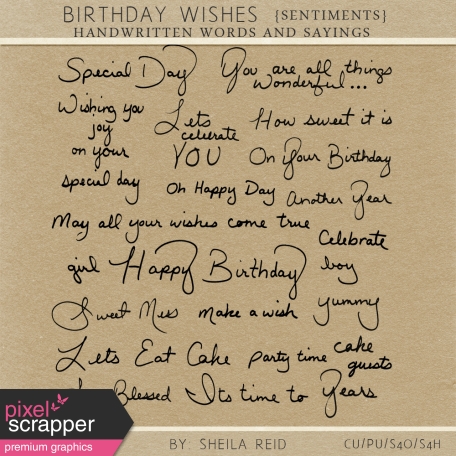 BIRTHDAY WISHES {SENTIMENTS}
HANDWRITTEN WORDS AND SAYINGS
Special Day You are all things
wonderful...
Wishing you
joy
on your
special day
Lets
celebrate
YOU
How sweet it is
On Your Birthday
Oh Happy Day Another Year
May all your wishes come true
Celebrate
girl Happy Birthday boy
Sweet Mess make a wish yummy
Lets Eat Cake party time cake
guests
Blessed Its time to Years
pixel
scrapper
premium graphics
BY: SHEILA REID
CU/PU/S4O/S4H